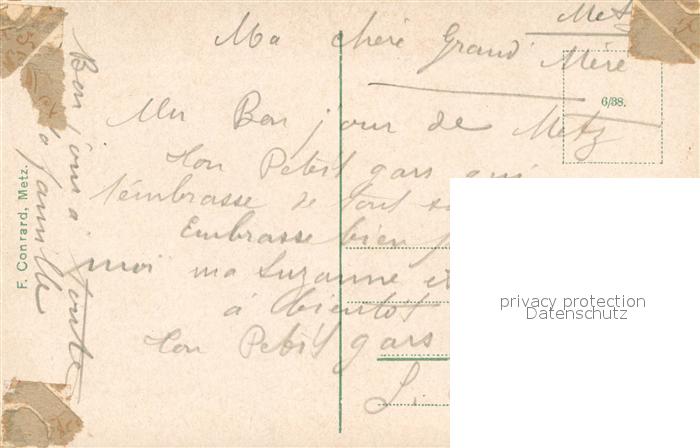 Metz
Ma chéré Grand Méré
6/38.
Un Bon jour de Metz
Ton Petit gars qui
t'embrasse de tout
Embrasse bien
moi ma Suzanne et
à bientot
Ton Petit gars
Bon jour a toute
la famille
F. Conrard, Metz.
privacy protection
Datenschutz